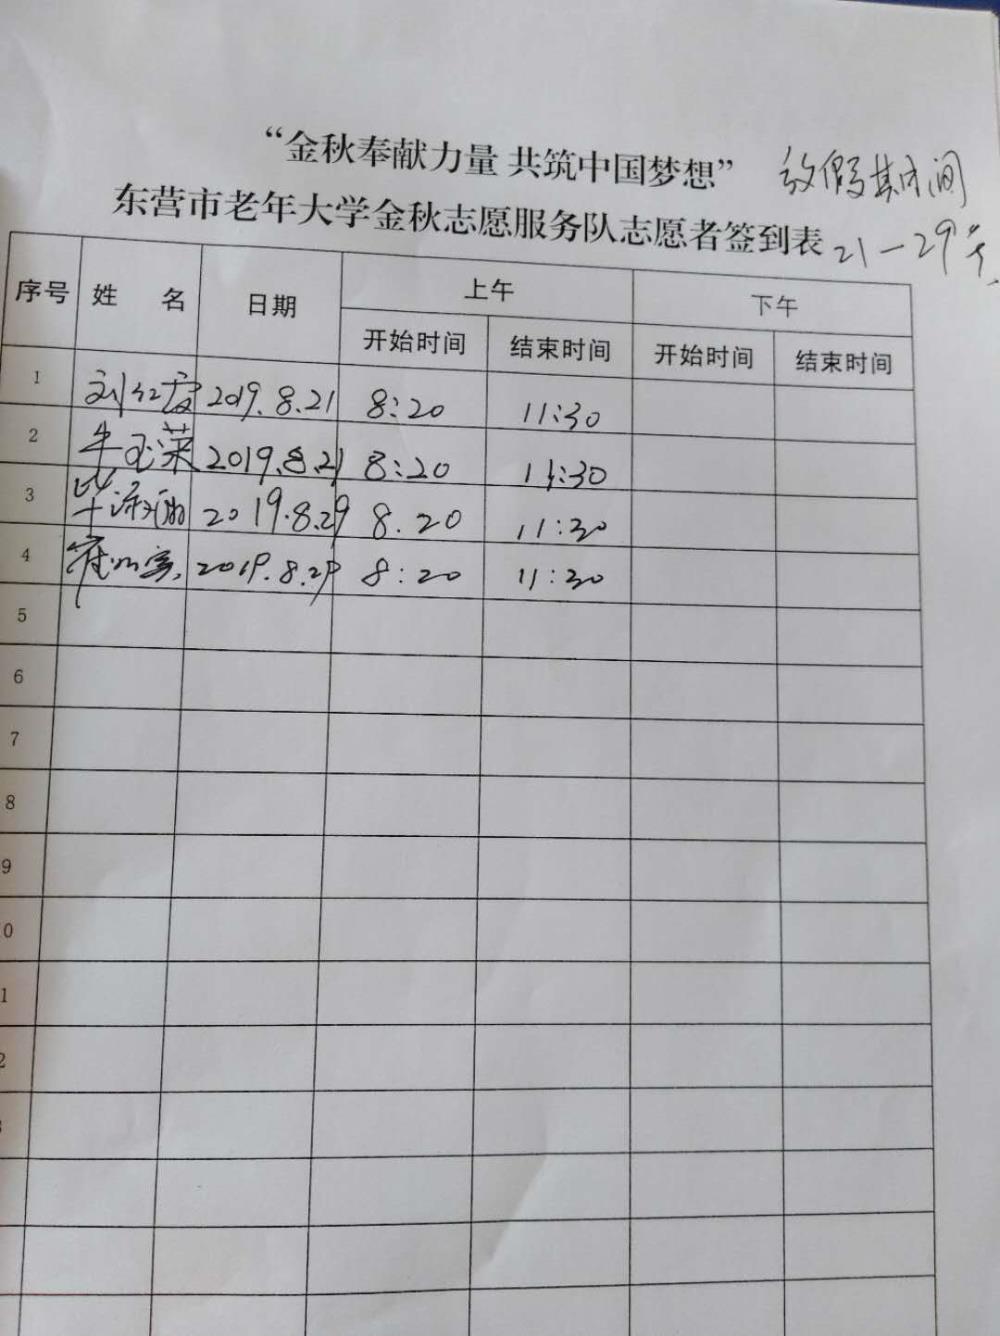 “金秋奉献力量 共筑中国梦想” 放假期间
东营市老年大学金秋志愿服务队志愿者签到表 21—29号
序号 姓 名 日期 上午 下午
开始时间 结束时间 开始时间 结束时间
1 刘红霞 2019.8.21 8:20 11:30
2 牛玉莱 2019.8.21 8:20 11:30
3 2019.8.29 8.20 11:30
4 2019.8.29 8:20 11:30
5
6
7
8
9
0
1
2